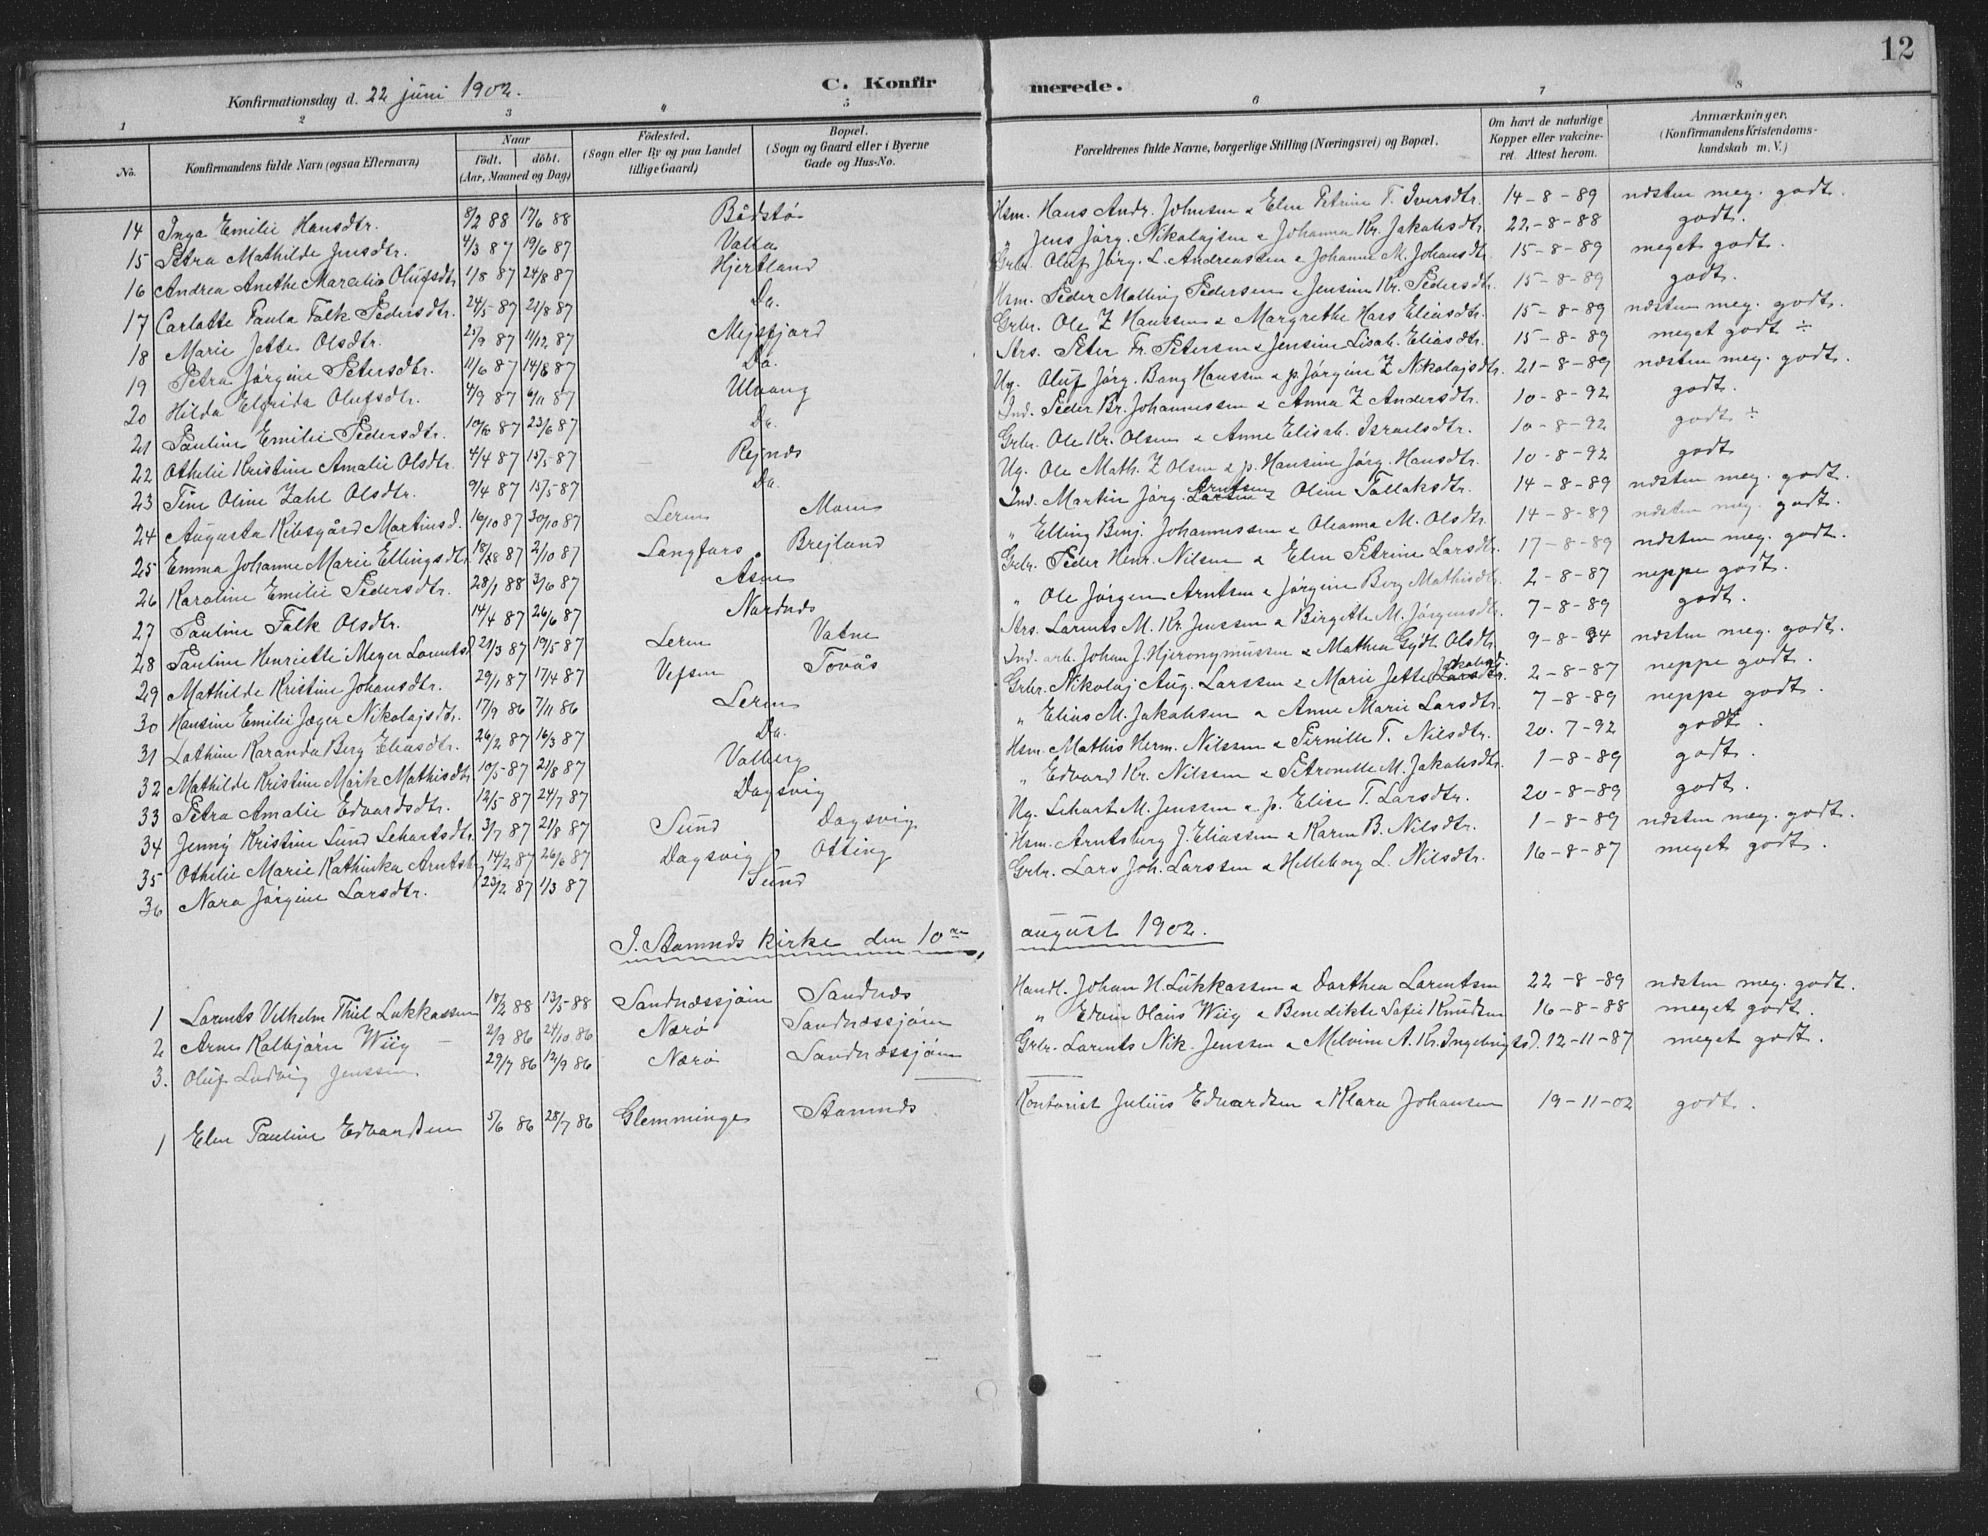 12
Konfirmationsdag d. 22 juni 1902. C. Konfirmerede.
1 2 3 4 5 6 7 8
No. Konfirmandens fulde Navn (ogsaa Efternavn) Naar født. døbt. (Aar, Maaned og Dag) Fødested. (Sogn eller By og paa Landet tillige Gaard) Bopæl. (Sogn og Gaard eller i Byerne Gade og Hus-No. Forældrenes fulde Navne, borgerlige Stilling (Næringsvei) og Bopæl. Om havt de naturlige Kopper eller vakcineret. Attest herom. Anmærkninger. (Konfirmandens Kristendomskundskab m. V.)
14 Inga Emilie Hansdtr. 8/2 88 17/6 88 Bådstø Hsm. Hans Andr. Johnsen & Elen Petrine T. Iversdtr. 14-8-89 næsten meg. godt.
15 Petra Mathilde Jensdtr. 4/3 87 19/6 87 Valla " Jens Jørg. Nikolajsen & Johanna Kr. Jakobsdtr. 22-8-88 godt.
16 Andrea Anethe Marselie Olufsdtr 1/8 87 24/8 87 Hjertland Grbr. Oluf Jørg. L. Andreassen & Johanne M. Johansdtr 15-8-89 meget godt.
17 Carlotte Paula Falk Pedersdtr. 24/5-87 21/8 87 Do. Hsm. Peder Malling Pedersen & Jensine Kr. Pedersdtr. 15-8-89 godt.
18 Marie Jette Olsdtr. 25/9 87 11/12 87 Mejsfjord Grbr. Ole Z Hanssen & Margrethe Hass Eliasdtr. 15-8-89 næsten meg. godt.
19 Petra Jørgine Petersdtr. 11/6 87 14/8 87 Do. Strs. Peter Fr. Petersen & Jensine Lisab. Eliasdtr. 15-8-89 meget godt ÷
20 Hilda Elfrida Olufsdtr. 4/9 87 6/11 87 Ulvang Ug. Oluf Jørg. Bang Hanssen & p. Jørgine Z Nikolajsdtr. 21-8-89 næsten meg. godt.
21 Pauline Emilie Pedersdtr. 87 23/6 87 Do. Ind. Peder Br. Johannessen & Anna Z Andersdtr. 10-8-92 godt.
22 Othelie Kristine Amalie Olsdtr. 4/4 87 15/5-87 Rejnes Grbr. Ole Kr. Olsen & Anne Elisab. Israelsdtr. 10-8-92 godt ÷
23 Tine Oline Zahl Olsdtr. 9/4 87 15/5-87 Do. Ug. Ole Math. Z Olsen & p. Hansine Jørg. Hansdtr. 10-8-92 godt
24 Augusta Kilsgård Martinsd. 16/10 87 30/10 87 Leren Moen Ind. Martin Jørg. Larsen Arntsen & Oline Tollaksdtr. 14-8-89 næsten meg. godt.
25 Emma Johanne Marie Ellingsdtr 87 2/10 87 Langfors. Brejland " Elling Benj. Johannessen & Oleanna M. Olsdtr. 14-8-89 næsten meg. godt.
26 Karoline Emilie Pedersdtr. 28/1 88 3/6 87 Asen Grbr. Peder Henr. Nilsen & Elen Petrine Larsdtr. 17-8-89 næsten meg. godt.
27 Pauline Falk Olsdtr. 14/4 87 26/6 87 Nordnes " Ole Jørgen Arntsen & Jørgine Berg Mathisdtr. 2-8-87 neppe godt.
28 Pauline Henriette Meyer Lorentsd 21/3 87 19/5-87 Leren Vatne Strs. Lorents M. Kr. Jenssen & Birgette M. Jørgensdtr. 7-8-89 godt.
29 Mathilde Kristine Johansdtr. 29/1 87 17/4 87 Vefsen Tovås Ind. arb. Johan J. Hjeronymussen & Mathea Gjdt. Olsdtr 9-8-94 næsten meg. godt.
30 Hansine Emilie Jæger Nikolajsdtr. 17/9 86 7/11 86 Leren Grbr. Nikolaj Aug. Larssen & Marie Jette Larsdtr. Jakobsd. 2-8-87 neppe godt.
31 Lothine Karanda Berg Eliasdtr. 26/2 87 16/3 87 Do. " Elias M. Jakobsen & Anne Marie Larsdtr. 7-8-89 neppe godt.
32 Mathilde Kristine Mørk Mathisdtr 10/5-87 21/8 87 Valberg Hsm. Mathis Herm. Nilssen & Pernille T. Nilsdtr. 20.7-92 godt.
33 Petra Amalie Edvardsdtr. 12/5-87 24/7 87 Dagsvig " Edvard Kr. Nilssen & Petronelle M. Jakobsdtr. 1-8-89 godt.
34 Jenny Kristine Lund Lehartsdtr. 3/7 87 21/8 87 Sund Dagsvig Ug. Lehart M. Jenssen & p. Elise T. Larsdtr. 20-8-89 godt.
35 Othilie Marie Kathinka Arntsb. 14/2 87 26/6 87 Dagsvig Otting Hsm. Arntsberg J. Eliassen & Karen B. Nilsdtr. 1-8-89 næsten meg. godt.
36 Nora Jørgine Larsdtr. 23/2 87 1/3 87 Sund Grbr. Lars Joh. Larssen & Helleborg L. Nilsdtr. 16-8-87 meget godt.
I. Stamnes kirke den 10de august 1902.
1 Lorents Vilhelm Thiel Lukkassen 18/2 88 13/5-88 Sandnæssjøen Sandnes Handl. Johan N. Lukkassen & Dorthea Lorentsen 22-8-89 næsten meg. godt.
2 Arne Kolbjørn Wiig 2/9 86 24/10 86 Nærø Sandnæssjøen " Edvin Olaus Wiig & Benedikte Sofie Knudsen 16-8-88 meget godt.
3. Oluf Ludvig Jenssen 29/7 86 12/9 86 Nærø Sandnæssjøen Grbr. Lorents Nik. Jenssen & Melvine A. Kr. Ingebrigtsd. 12-11-87 meget godt.
1 Elen Pauline Edvardsen 5/6 86 28/7 86 Glemminge Stamnes Kontorist Julius Edvardsen & Klara Johansen 19-11-02 godt.